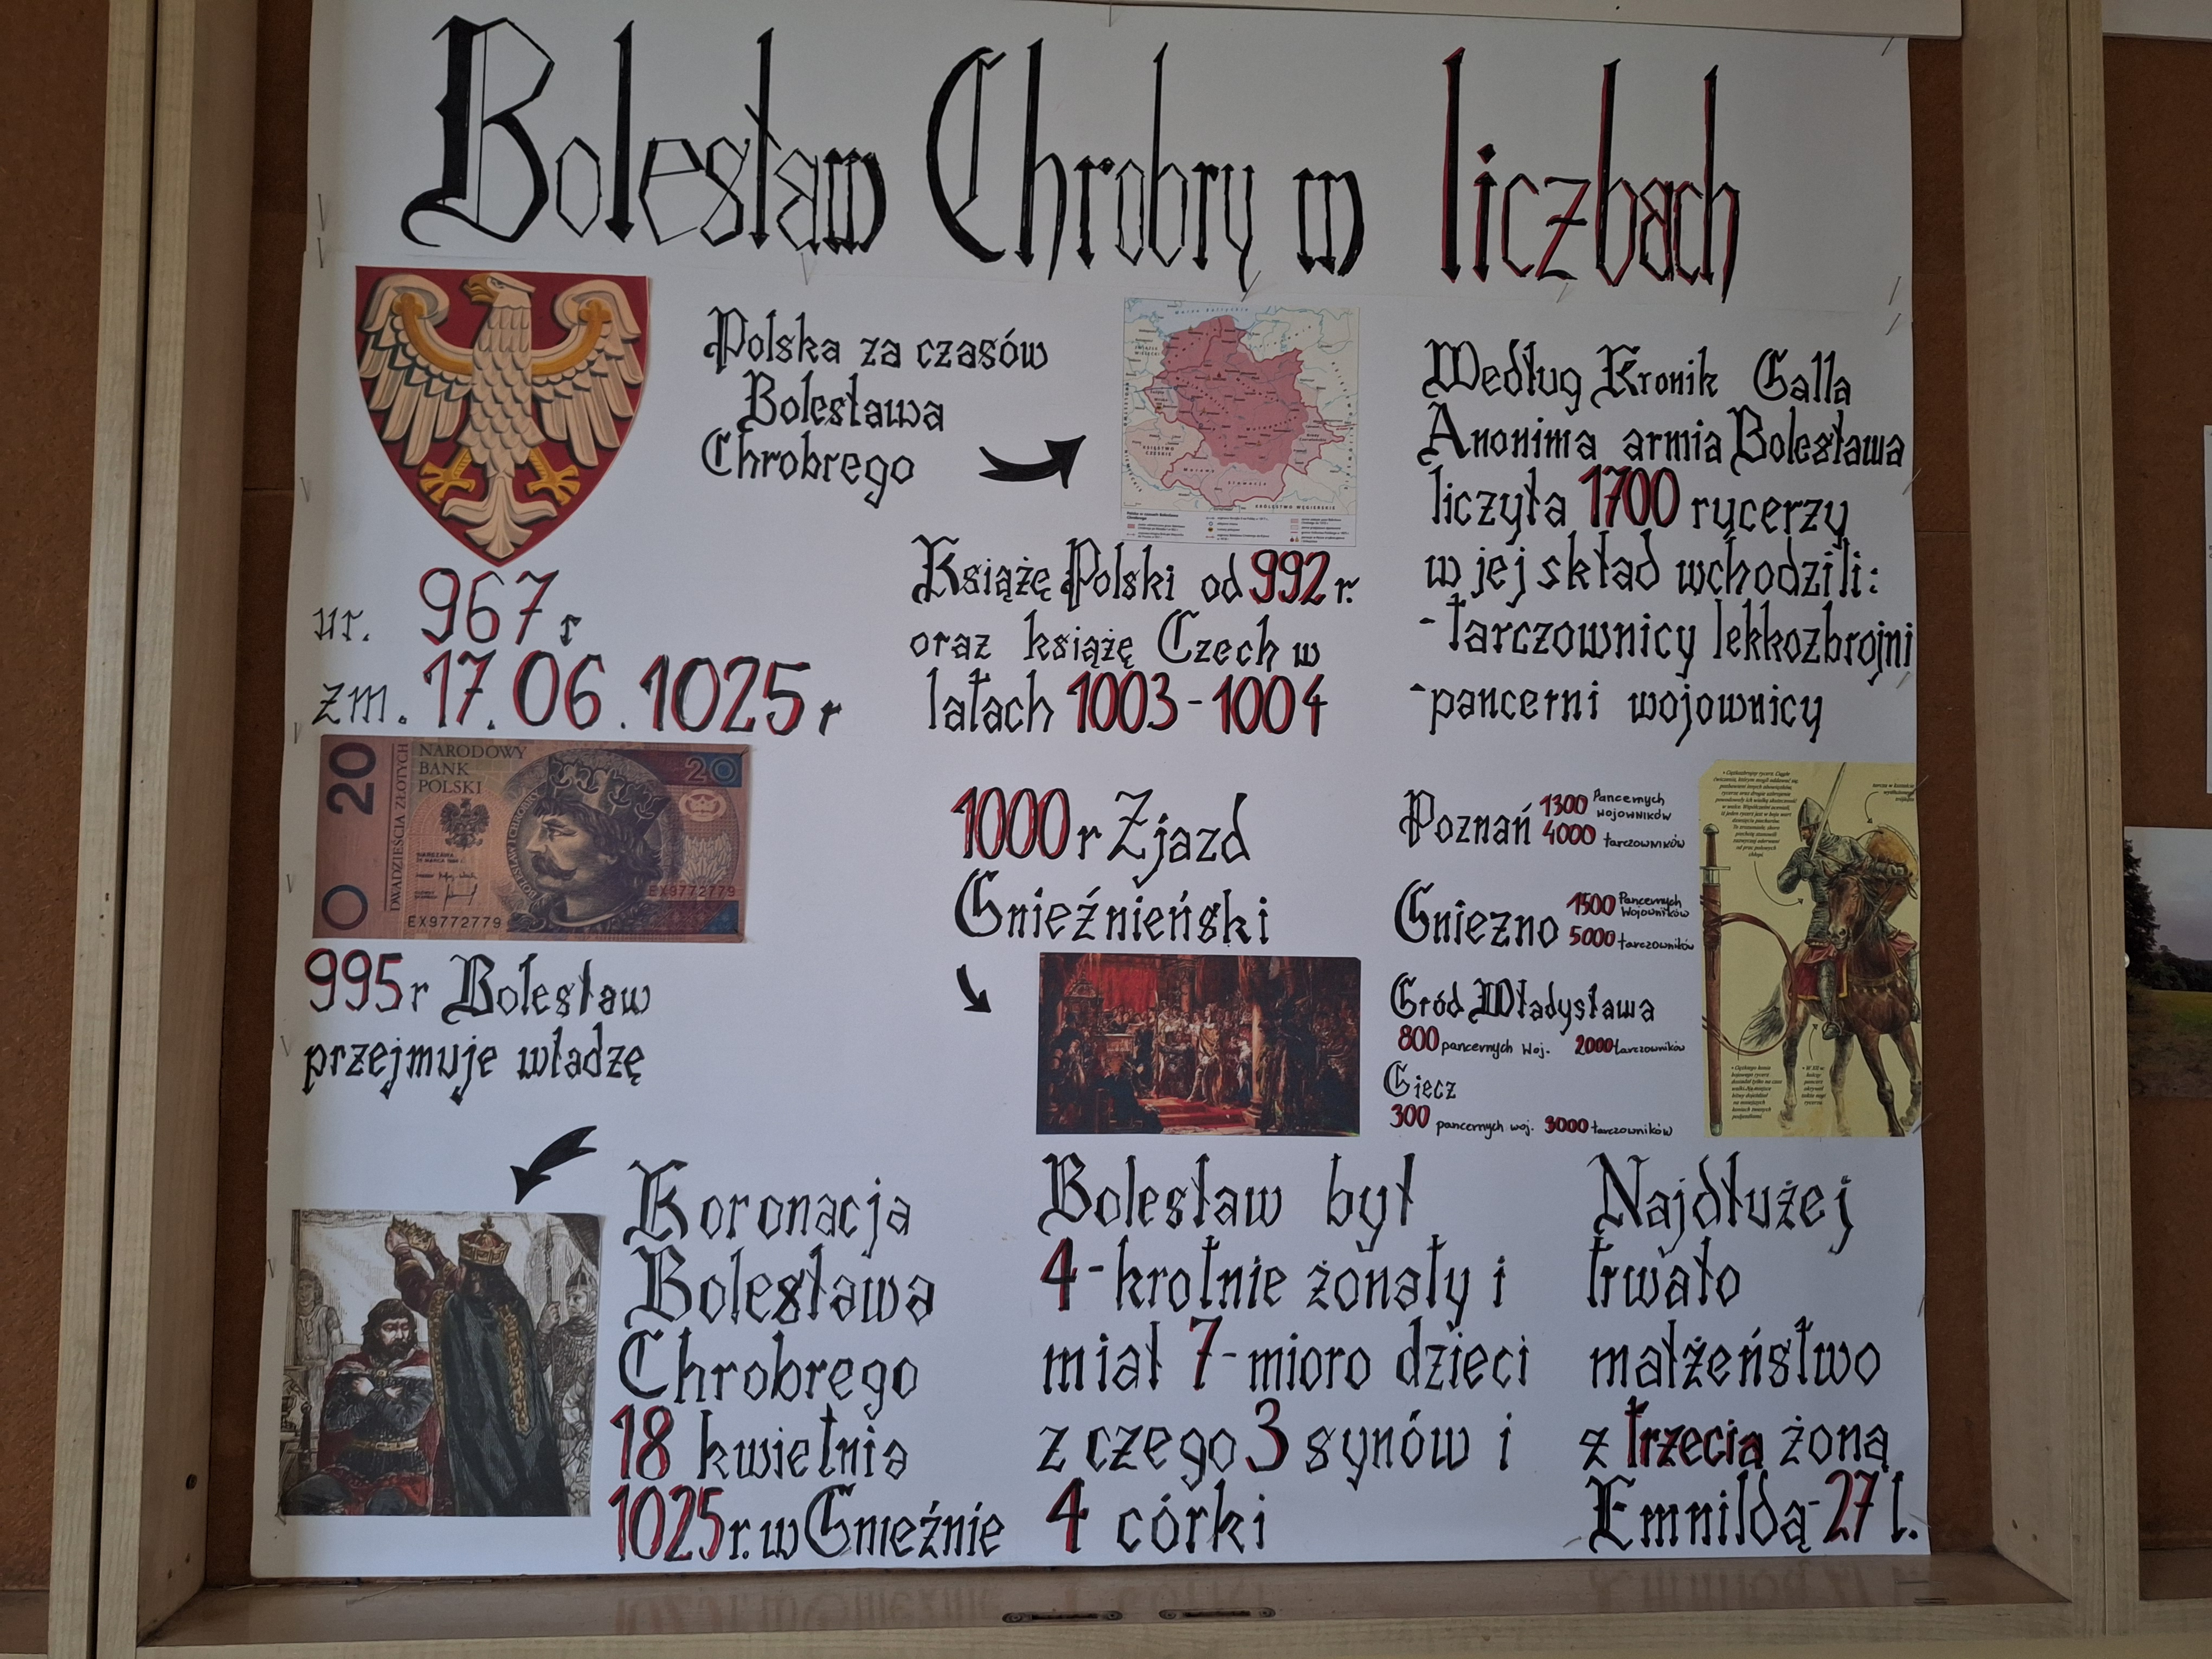 Bolesław Chrobry w liczbach
Polska za czasów
Bolesława
Chrobrego
ur. 967r
zm. 17.06.1025r
NARODOWY
BANK
POLSKI
20
20
DWADZIEŚCIA ZŁOTYCH
WARSZAWA
BOLESŁAW I CHROBRY
EX9772779
EX9772779
995r Bolesław
przejmuje władzę
Koronacja
Bolesława
Chrobrego
18 kwietnia
1025r. w Gnieźnie
Książę Polski od 992 r.
oraz książę Czech w
latach 1003-1004
1000r Zjazd
Gnieźnieński
Bolesław był
4-krotnie żonaty i
miał 7-mioro dzieci
z czego 3 synów i
4 córki
Według Kronik Galla
Anonima armia Bolesława
liczyła 1700 rycerzy
w jej skład wchodzili:
-tarczownicy lekkozbrojni
-pancerni wojownicy
Poznań 1300 Pancernych wojowników
4000 tarczowników
Gniezno 1500 Pancernych Wojowników
5000 tarczowników
Gród Władysława
800 pancernych woj. 2000 tarczowników
Giecz
300 pancernych woj. 3000 tarczowników
Najdłużej
trwało
małżeństwo
z trzecią żoną
Emnildą-27 l.